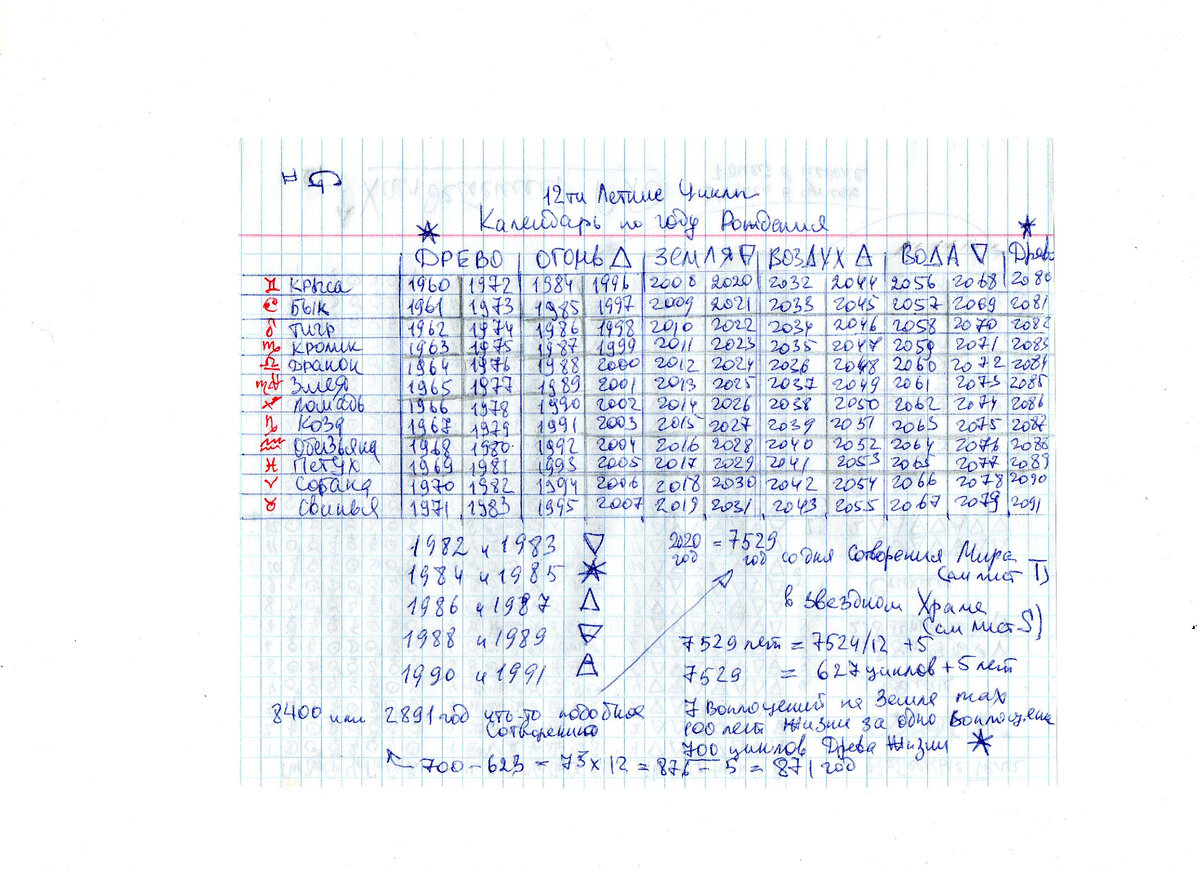 12ти Летние Циклы
Календарь по году Рождения
ДРЕВО ОГОНЬ ЗЕМЛЯ ВОЗДУХ ВОДА Древо
Крыса 1960 1972 1984 1996 2008 2020 2032 2044 2056 2068 2080
Бык 1961 1973 1985 1997 2009 2021 2033 2045 2057 2069 2081
Тигр 1962 1974 1986 1998 2010 2022 2034 2046 2058 2070 2082
Кролик 1963 1975 1987 1999 2011 2023 2035 2047 2059 2071 2083
Дракон 1964 1976 1988 2000 2012 2024 2036 2048 2060 2072 2084
Змея 1965 1977 1989 2001 2013 2025 2037 2049 2061 2073 2085
Лошадь 1966 1978 1990 2002 2014 2026 2038 2050 2062 2074 2086
Коза 1967 1979 1991 2003 2015 2027 2039 2051 2063 2075 2087
Обезьяна 1968 1980 1992 2004 2016 2028 2040 2052 2064 2076 2088
Петух 1969 1981 1993 2005 2017 2029 2041 2053 2065 2077 2089
Собака 1970 1982 1994 2006 2018 2030 2042 2054 2066 2078 2090
Свинья 1971 1983 1995 2007 2019 2031 2043 2055 2067 2079 2091
1982 и 1983
1984 и 1985
1986 и 1987
1988 и 1989
1990 и 1991
2020 год = 7529 год со дня Сотворения Мира
(см лист T)
в Звездном Храме
(см лист S)
7529 лет = 7524/12 + 5
7529 = 627 циклов + 5 лет
7 Воплощений на Земле max
100 лет Жизни за одно Воплощение
700 циклов Древа Жизни
8400 или 2891 год что-то подобное
Сотворению
700 - 623 = 73 x 12 = 876 - 5 = 871 год